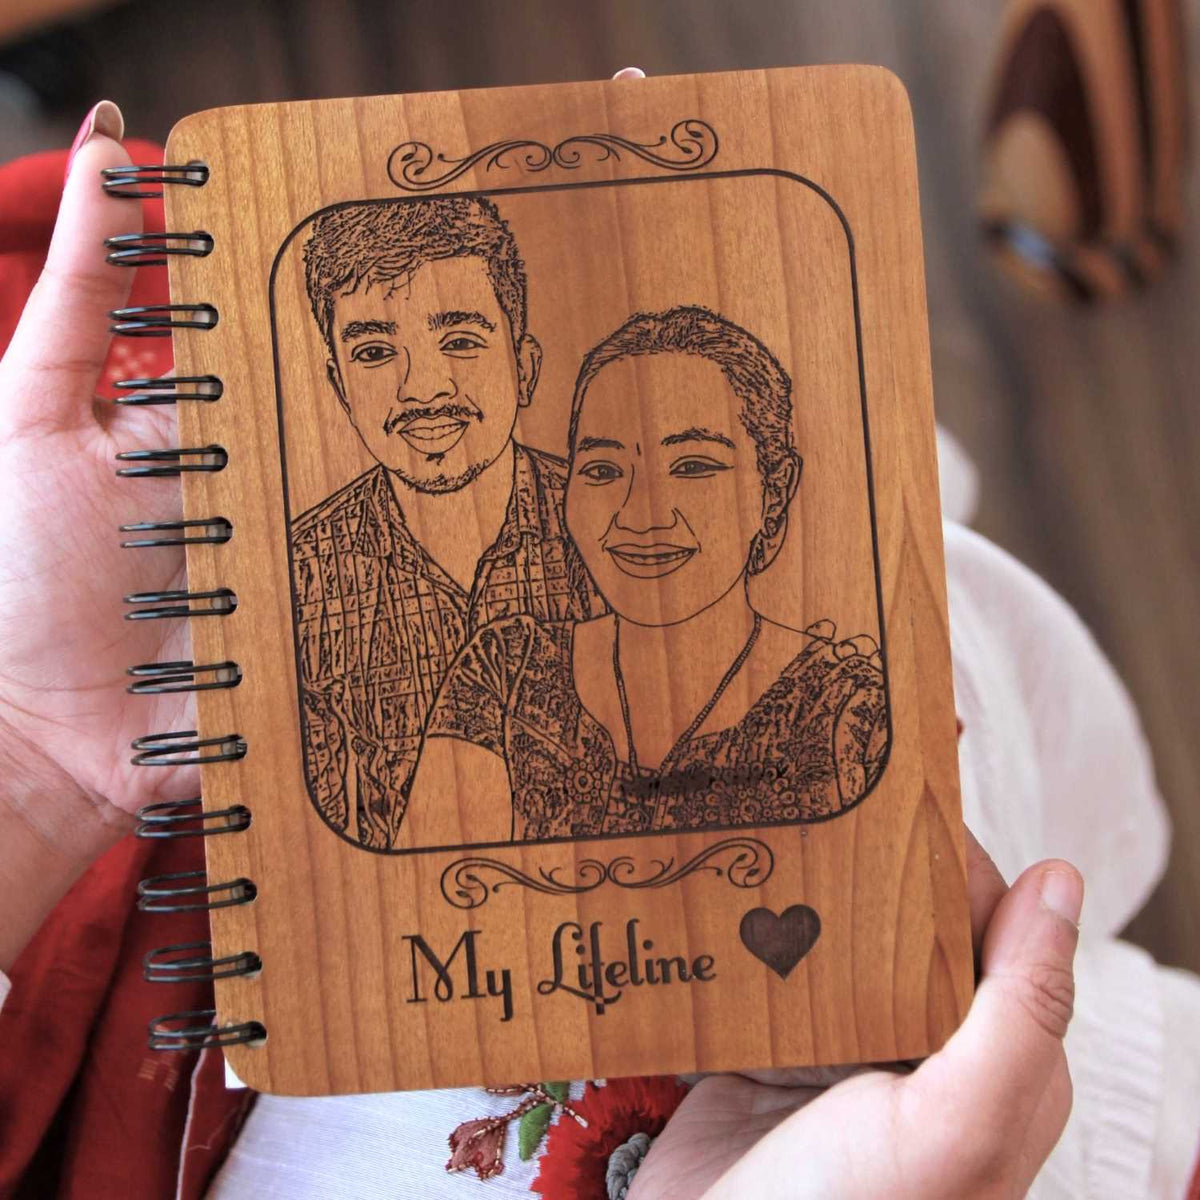 My Lifeline